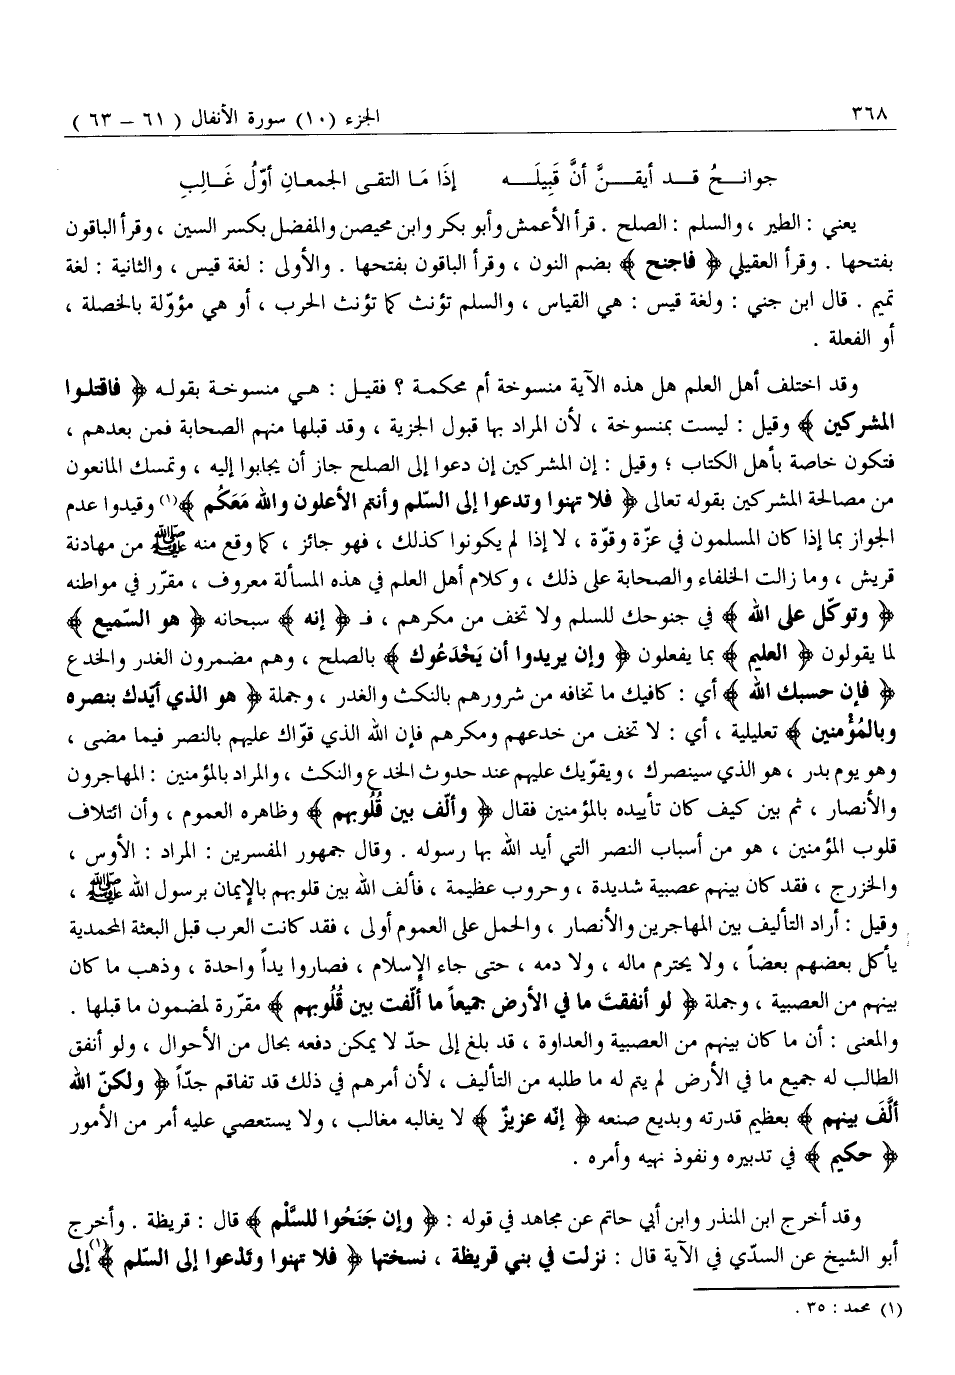 ٣٦٨ الجزء (١٠) سورة الأنفال ( ٦١ – ٦٣ )
جوانـــحُ قـــد أيقـــنَّ أنَّ قَبِيلَـــه إذَا مَـا التقـى الجمعـانِ أوّلُ غَـالِبِ
يعني : الطير ، والسلم : الصلح . قرأ الأعمش وأبو بكر وابن محيصن والمفضل بكسر السين ، وقرأ الباقون
بفتحها . وقرأ العقيلي ﴿ فاجنح ﴾ بضم النون ، وقرأ الباقون بفتحها . والأولى : لغة قيس ، والثانية : لغة
تميم . قال ابن جني : ولغة قيس : هي القياس ، والسلم تؤنث كما تؤنث الحرب ، أو هي مؤوّلة بالخصلة ،
أو الفعلة .
وقد اختلف أهل العلم هل هذه الآية منسوخة أم محكمة ؟ فقيل : هي منسوخة بقوله ﴿ فاقتلوا
المشركين ﴾ وقيل : ليست بمنسوخة ، لأن المراد بها قبول الجزية ، وقد قبلها منهم الصحابة فمن بعدهم ،
فتكون خاصة بأهل الكتاب ؛ وقيل : إن المشركين إن دعوا إلى الصلح جاز أن يجابوا إليه ، وتمسك المانعون
من مصالحة المشركين بقوله تعالى ﴿ فلا تهنوا وتدعوا إلى السّلم وأنتم الأعلون والله مَعَكُم ﴾(١) وقيدوا عدم
الجواز بما إذا كان المسلمون في عزّة وقوّة ، لا إذا لم يكونوا كذلك ، فهو جائز ، كما وقع منه ﷺ من مهادنة
قريش ، وما زالت الخلفاء والصحابة على ذلك ، وكلام أهل العلم في هذه المسألة معروف ، مقرّر في مواطنه
﴿ وتوكّل على الله ﴾ في جنوحك للسلم ولا تخف من مكرهم ، فـ ﴿ إنه ﴾ سبحانه ﴿ هو السّميع ﴾
لما يقولون ﴿ العليم ﴾ بما يفعلون ﴿ وإن يريدوا أن يَخْدَعُوك ﴾ بالصلح ، وهم مضمرون الغدر والخدع
﴿ فإن حسبك الله ﴾ أي : كافيك ما تخافه من شرورهم بالنكث والغدر ، وجملة ﴿ هو الذي أيّدك بنصره
وبالمُؤْمنين ﴾ تعليلية ، أي : لا تخف من خدعهم ومكرهم فإن الله الذي قوّاك عليهم بالنصر فيما مضى ،
وهو يوم بدر ، هو الذي سينصرك ، ويقوّيك عليهم عند حدوث الخدع والنكث ، والمراد بالمؤمنين : المهاجرون
والأنصار ، ثم بين كيف كان تأييده بالمؤمنين فقال ﴿ وألّف بين قُلُوبهم ﴾ وظاهره العموم ، وأن ائتلاف
قلوب المؤمنين ، هو من أسباب النصر التي أيد الله بها رسوله . وقال جمهور المفسرين : المراد : الأوس ،
والخزرج ، فقد كان بينهم عصبية شديدة ، وحروب عظيمة ، فألف الله بين قلوبهم بالإيمان برسول الله ﷺ ،
وقيل : أراد التأليف بين المهاجرين والأنصار ، والحمل على العموم أولى ، فقد كانت العرب قبل البعثة المحمدية
يأكل بعضهم بعضاً ، ولا يحترم ماله ، ولا دمه ، حتى جاء الإسلام ، فصاروا يداً واحدة ، وذهب ما كان
بينهم من العصبية ، وجملة ﴿ لو أنفقتَ ما في الأرض جميعاً ما ألّفت بين قُلُوبهم ﴾ مقرّرة لمضمون ما قبلها .
والمعنى : أن ما كان بينهم من العصبية والعداوة ، قد بلغ إلى حدّ لا يمكن دفعه بحال من الأحوال ، ولو أنفق
الطالب له جميع ما في الأرض لم يتم له ما طلبه من التأليف ، لأن أمرهم في ذلك قد تفاقم جدّاً ﴿ ولكنّ الله
ألَّفَ بينهم ﴾ بعظيم قدرته وبديع صنعه ﴿ إنّه عزيزٌ ﴾ لا يغالبه مغالب ، ولا يستعصي عليه أمر من الأمور
﴿ حكيم ﴾ في تدبيره ونفوذ نهيه وأمره .
وقد أخرج ابن المنذر وابن أبي حاتم عن مجاهد في قوله : ﴿ وإن جَنَحُوا للسَّلْم ﴾ قال : قريظة . وأخرج
أبو الشيخ عن السدّي في الآية قال : نزلت في بني قريظة ، نسختها ﴿ فلا تهنوا وتَدْعوا إلى السّلم ﴾(١) إلى
(١) محمد : ٣٥ .